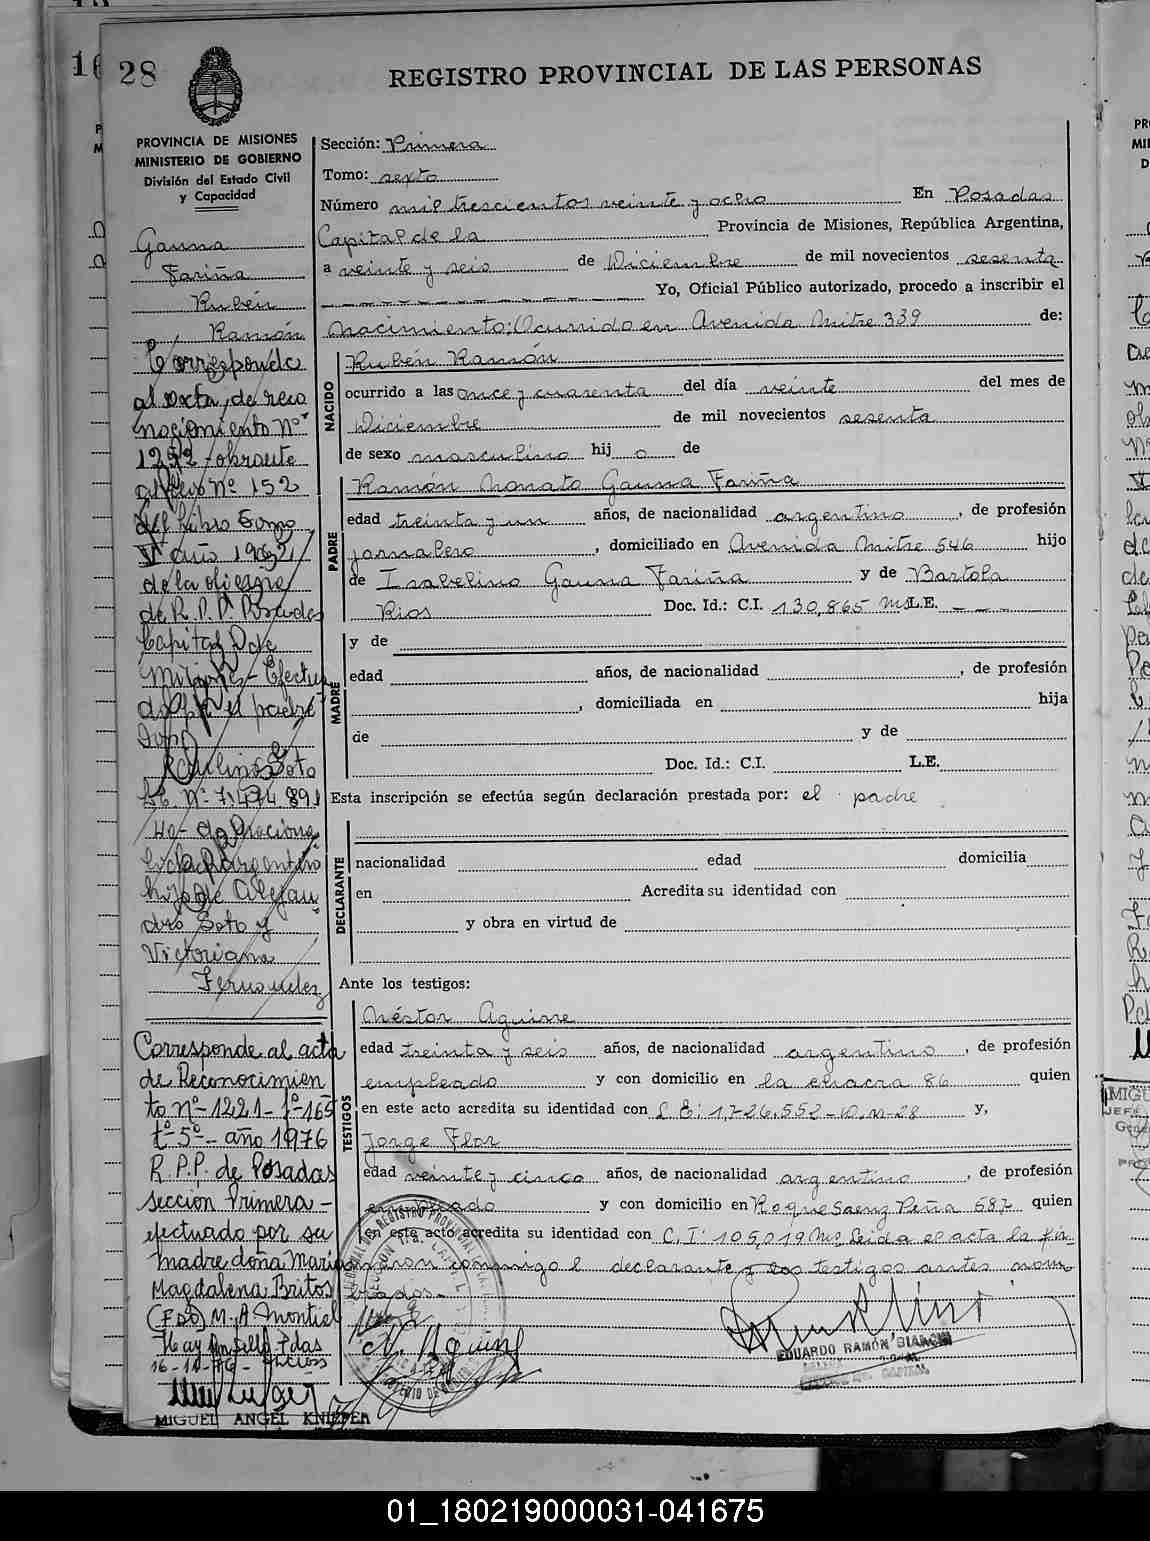 28
REGISTRO PROVINCIAL DE LAS PERSONAS
PROVINCIA DE MISIONES
MINISTERIO DE GOBIERNO
División del Estado Civil
y Capacidad
Gauna
Fariña
Rubén
Ramón
Corresponde
al acta, de reco
nocimiento Nº
1292 obrante
al folio Nº 152
del Libro Tomo
V año 1962
de la oficina
de R.P.P. Posadas
Capital Dpto
Misiones - Efectua
do por el padre
Don
Paulino Soto
Nº 7.474.891
de Naciona
lidad Argentino
hijo de Alejan
dro Soto y
Victoriana
Fernandez
Corresponde al acta
de Reconocimien
to nº 1221 - fº 165
tº 5º - año 1976
R.P.P. de Posadas
sección Primera -
efectuado por su
madre doña Maria
Magdalena Britos
(FDO) M. A. Montiel
Hay un sello Pdas
16-11-76
MIGUEL ANGEL KNIZPER
Sección: Primera
Tomo: sexto
Número mil trescientos veinte y ocho En Posadas
Capital de la Provincia de Misiones, República Argentina,
a veinte y seis de Diciembre de mil novecientos sesenta
Yo, Oficial Público autorizado, procedo a inscribir el
nacimiento: Ocurrido en Avenida Mitre 339 de:
NACIDO
Rubén Ramón
ocurrido a las once y cuarenta del día veinte del mes de
Diciembre de mil novecientos sesenta
de sexo masculino hij o de
PADRE
Ramón Nonato Gauna Fariña
edad treinta y un años, de nacionalidad argentino, de profesión
jornalero, domiciliado en Avenida Mitre 546 hijo
de Isabelino Gauna Fariña y de Bartola
Rios Doc. Id.: C.I. 130,865 Ms L.E. - - -
MADRE
y de
edad años, de nacionalidad , de profesión
, domiciliada en hija
de y de
Doc. Id.: C.I. L.E.
Esta inscripción se efectúa según declaración prestada por: el padre
DECLARANTE
nacionalidad edad domicilia
en Acredita su identidad con
y obra en virtud de
Ante los testigos:
TESTIGOS
Néstor Aguirre
edad treinta y seis años, de nacionalidad argentino, de profesión
empleado y con domicilio en la chacra 86 quien
en este acto acredita su identidad con L.E: 1,726,552-D.M-28 y,
Jorge Flor
edad veinte y cinco años, de nacionalidad argentino, de profesión
empleado y con domicilio en Roque Saenz Peña 687 quien
en este acto acredita su identidad con C.I: 105,019 Ms Leida el acta la fir
maron conmigo el declarante y los testigos antes nom
brados.-
EDUARDO RAMÓN BIANCHI
01_180219000031-041675